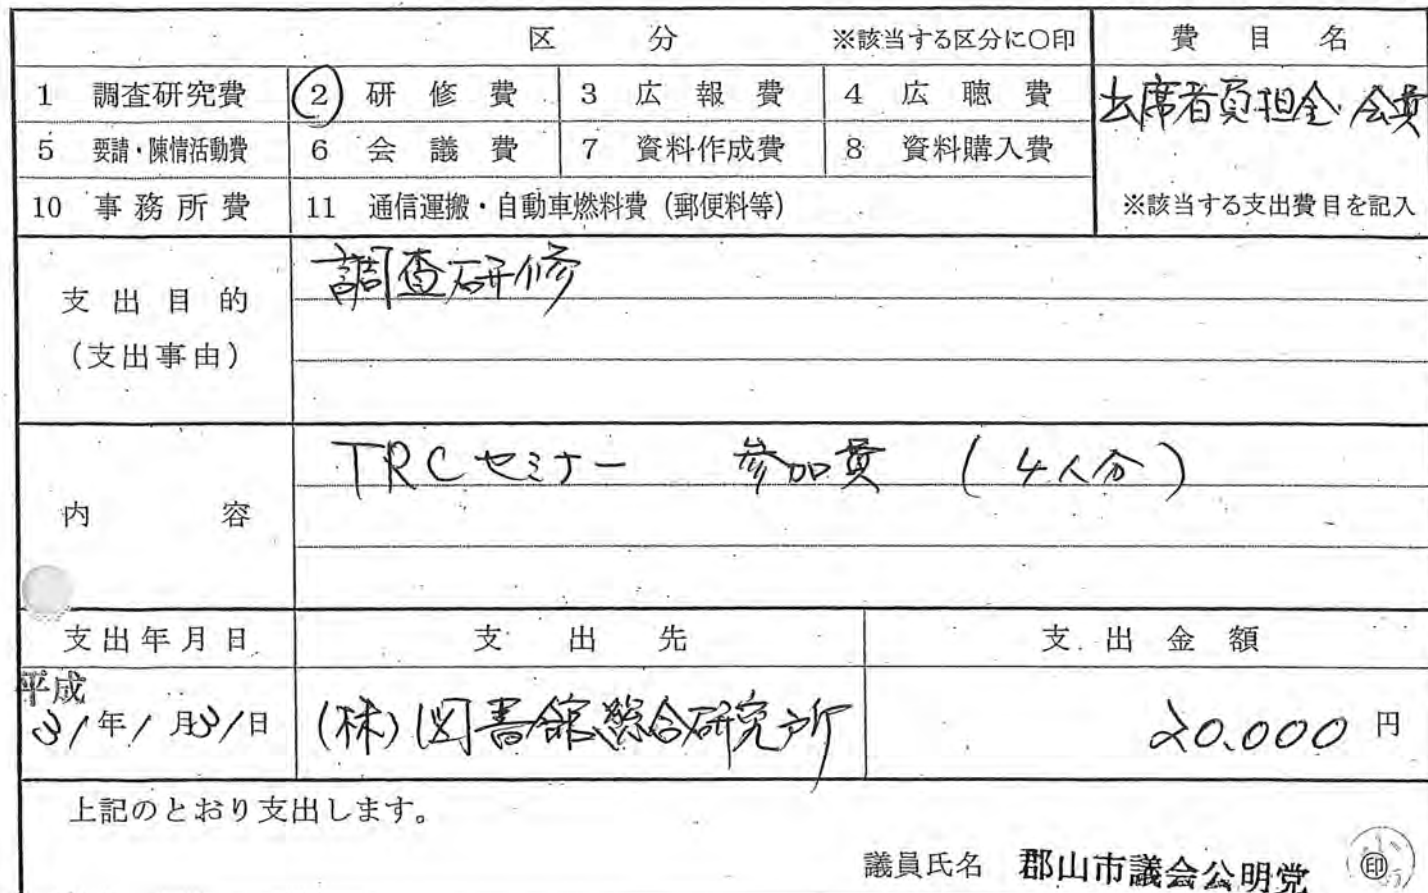 区 分 ※該当する区分に○印 費 目 名
1 調査研究費 ② 研 修 費 3 広 報 費 4 広 聴 費 出席者負担金・会費
5 要請・陳情活動費 6 会 議 費 7 資料作成費 8 資料購入費
10 事 務 所 費 11 通信運搬・自動車燃料費(郵便料等) ※該当する支出費目を記入
支 出 目 的 調査研修
(支出事由)
TRCセミナー 参加費 (4人分)
内 容
支出年月日 支 出 先 支 出 金 額
平成
31年1月31日 (株)図書館総合研究所 20.000 円
上記のとおり支出します。
議員氏名 郡山市議会公明党 ㊞